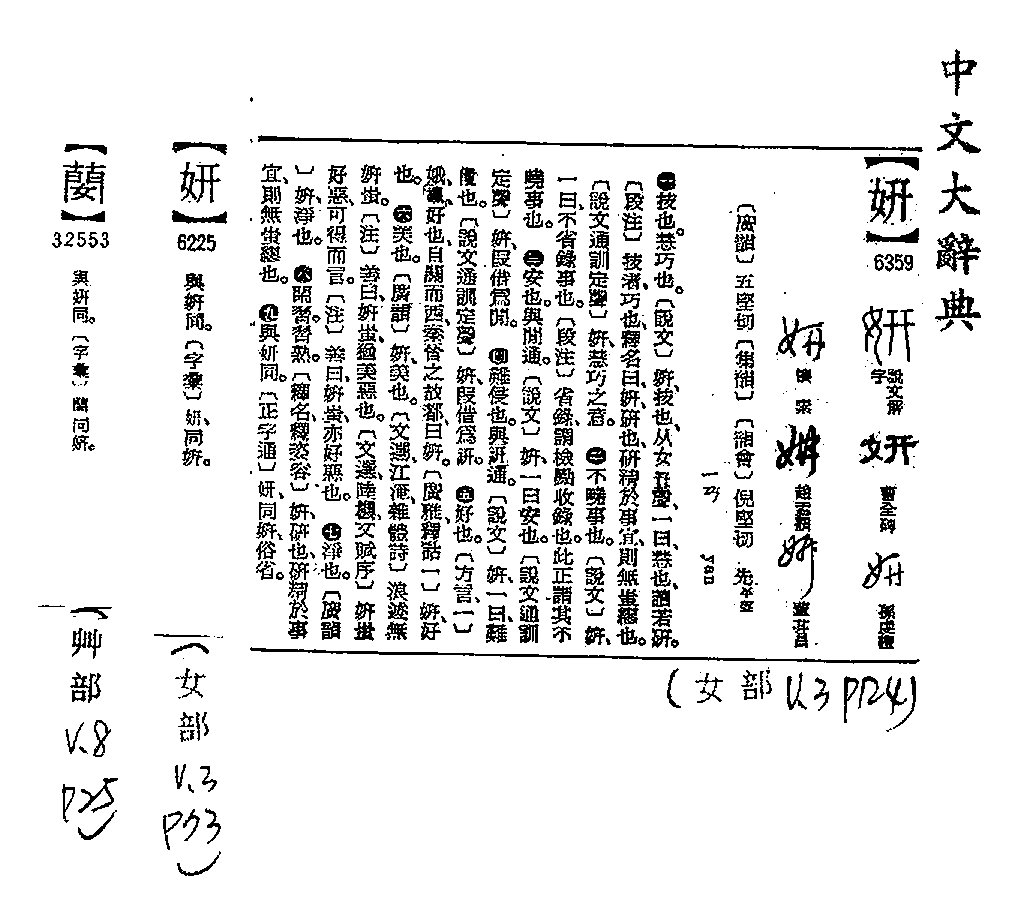 中文大辭典
【姸】
6359
說文解字
曹全碑
孫虔禮
懷素
趙孟頫
董其昌
〔廣韻〕五堅切〔集韻〕〔韻會〕倪堅切 先平聲
ㄧㄢˊ yan
㊀技也。慧巧也。〔說文〕姸、技也、从女幵聲、一曰慧也、讀若研。
〔段注〕技者巧也、釋名曰、姸、研也、研精於事宜、則無蚩繆也。
〔說文通訓定聲〕姸、慧巧之意。㊁不曉事也。〔說文〕姸、
一曰、不省錄事也。〔段注〕省錄、謂檢點收錄也、此正謂其不
曉事也。㊂安也。與閒通。〔說文〕姸、一曰安也。〔說文通訓
定聲〕姸、叚借爲閒。㊃難侵也。與訮通。〔說文〕姸、一曰難
侵也。〔說文通訓定聲〕姸、叚借爲訮。㊄好也。〔方言、一〕
娥、㜲、好也、自關而西、秦晉之故都曰姸。〔廣雅、釋詁一〕姸、好
也。㊅美也。〔廣韻〕姸、美也。〔文選、江淹、雜體詩〕浪迹無
姸蚩。〔注〕善曰、姸蚩、猶美惡也。〔文選、陸機、文賦序〕姸蚩
好惡、可得而言。〔注〕善曰、姸蚩、亦好惡也。㊆淨也。〔廣韻
〕姸、淨也。㊇閑習習熟。〔釋名、釋姿容〕姸、研也、研精於事
宜、則無蚩繆也。㊈與妍同。〔正字通〕妍、同姸、俗省。
(女部 V.3 P124)
【妍】
6225
與姸同。〔字彙〕妍、同姸。
(女部 V.3 P73)
32553
與姸同。
(艸部 V.8 P25)